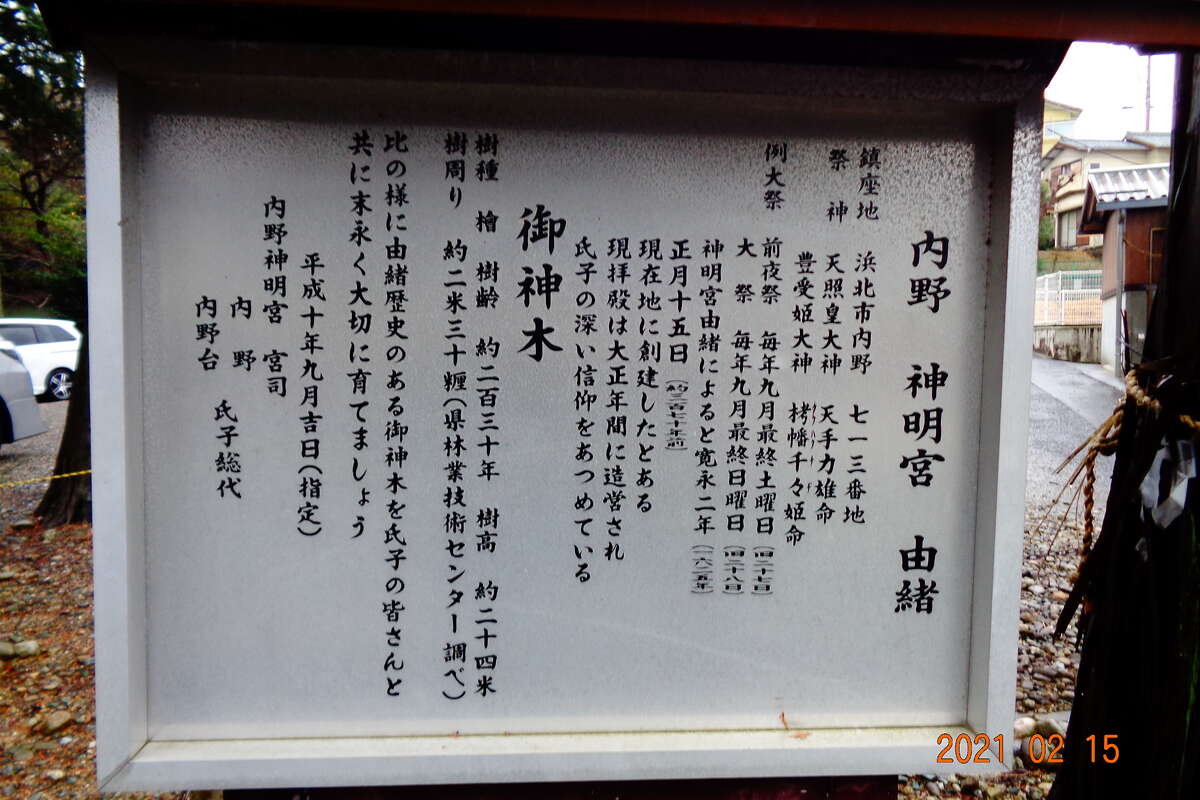 内野 神明宮 由緒
鎮座地 浜北市内野 七一三番地
祭神 天照皇大神 天手力雄命
豊受姫大神 栲幡千々姫命
例大祭 前夜祭 毎年九月最終土曜日(旧二十七日)
大祭 毎年九月最終日曜日(旧二十八日)
神明宮由緒によると寛永二年(一六二五年)
正月十五日(約三百七十年前)
現在地に創建したとある
現拝殿は大正年間に造営され
氏子の深い信仰をあつめている
御神木
樹種 檜 樹齢 約二百三十年 樹高 約二十四米
樹周り 約二米三十糎(県林業技術センター調べ)
比の様に由緒歴史のある御神木を氏子の皆さんと
共に末永く大切に育てましょう
平成十年九月吉日(指定)
内野神明宮 宮司
内野 氏子総代
内野台
2021 02 15